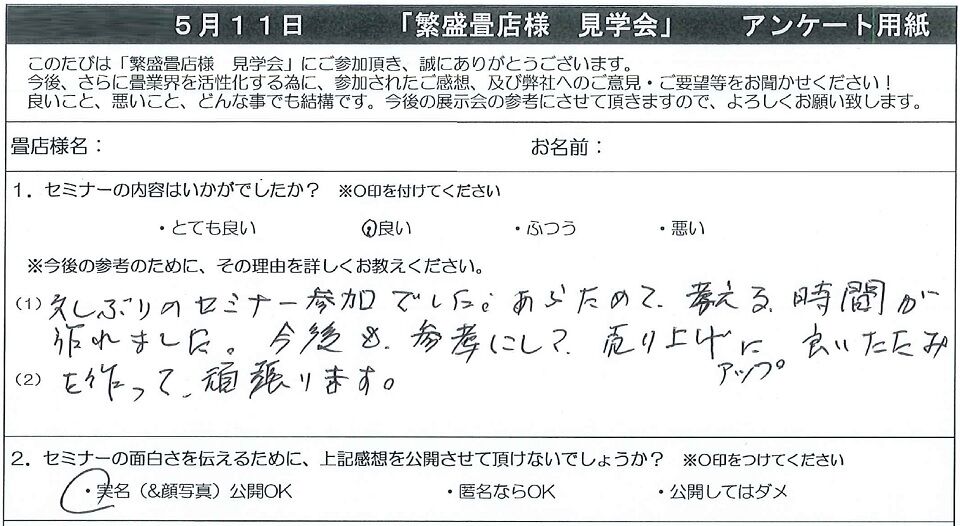 5月11日 「繁盛畳店様 見学会」 アンケート用紙
このたびは「繁盛畳店様 見学会」にご参加頂き、誠にありがとうございます。
今後、さらに畳業界を活性化する為に、参加されたご感想、及び弊社へのご意見・ご要望等をお聞かせください！
良いこと、悪いこと、どんな事でも結構です。今後の展示会の参考にさせて頂きますので、よろしくお願い致します。
畳店様名： お名前：
1．セミナーの内容はいかがでしたか？ ※〇印を付けてください
・とても良い ・良い ・ふつう ・悪い
※今後の参考のために、その理由を詳しくお教えください。
(1) 久しぶりのセミナー参加でした。あらためて、考える時間が
作れました。今後も、参考にして、売り上げに 良いたたみ
アップ
(2) を作って、頑張ります。
2．セミナーの面白さを伝えるために、上記感想を公開させて頂けないでしょうか？ ※〇印をつけてください
・実名（&顔写真）公開OK ・匿名ならOK ・公開してはダメ